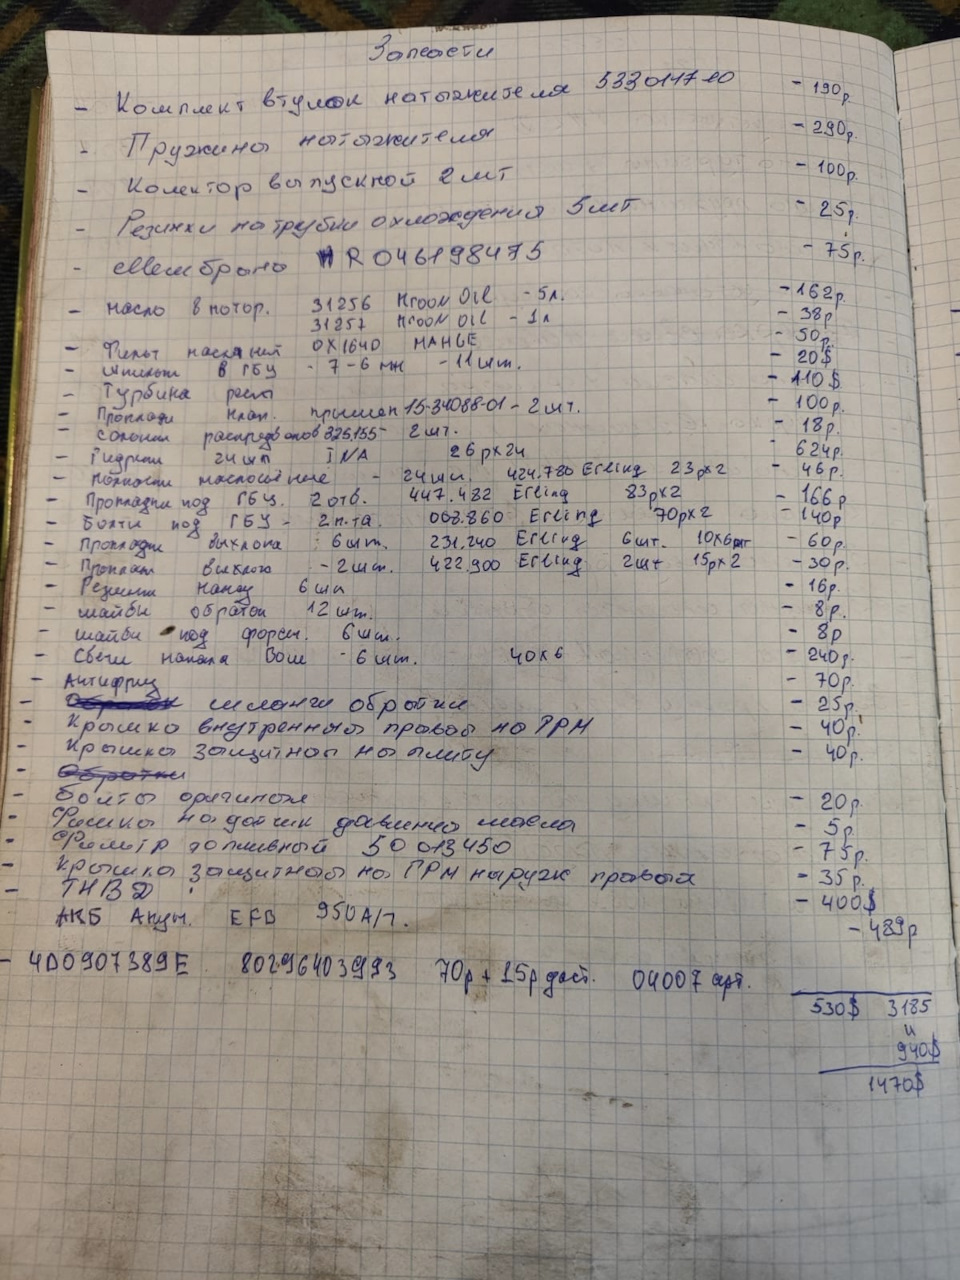 Запчасти
- Комплект втулок натяжителя 533011710 - 190р.
- Пружины натяжителя - 290р.
- Колектор выпускной 2шт - 100р.
- Резинки на трубки охлаждения 5шт - 25р.
- Мембрана R046198475 - 75р.
- Масло в мотор. 31256 MOON OIL - 5л. - 162р.
31257 MOON OIL - 1л - 38р
- Фильт маслянный OX164D MAHLE - 50р.
- в ГБЦ - 7-6 мм - 11шт. - 20$
- Турбина - 110$
- Прокладки 15-34088-01 - 2шт. - 100р.
- распредвалов 326.155 - 2шт. - 18р.
- Гидрики 24шт INA 26рх24 624р.
- - 24шт. 424.780 Erling 23рх2 - 46р.
- Прокладки под ГБЦ. 2отв. 447.482 Erling 83рх2 - 166р
- Болты под ГБЦ - 2п.та. 063.860 Erling 70рх2 - 140р
- Прокладки выхлопа 6шт. 231.240 Erling 6шт. 10х6шт - 60р.
- Проклад выхлоп - 2шт. 422.900 Erling 2шт 15рх2 - 30р.
- 6шт - 16р.
- шайбы обратки 12шт. - 8р.
- шайбы под форсы. 6шт. - 8р
- Свечи накала Бош - 6шт. 40х6 - 240р.
- Антифриз - 70р.
- шланги обратки - 25р.
- Крышка внутренняя правая на ГРМ - 40р.
- Крышка защитная на плиту - 40р.
- Обратки
- Болты оригинал - 20р.
- Фишка на датчик давления масла - 5р
- Фильтр топливный 50013450 - 75р.
- Крышка защитная на ГРМ наружн правая - 35р.
- ТНВД - 400$
АКБ Акум. EFB 950А/п. - 489р
- 4D0907389E 80296403993 70р + 15р дост. 04007 арт.
530$ 3185
и
940$
1470$